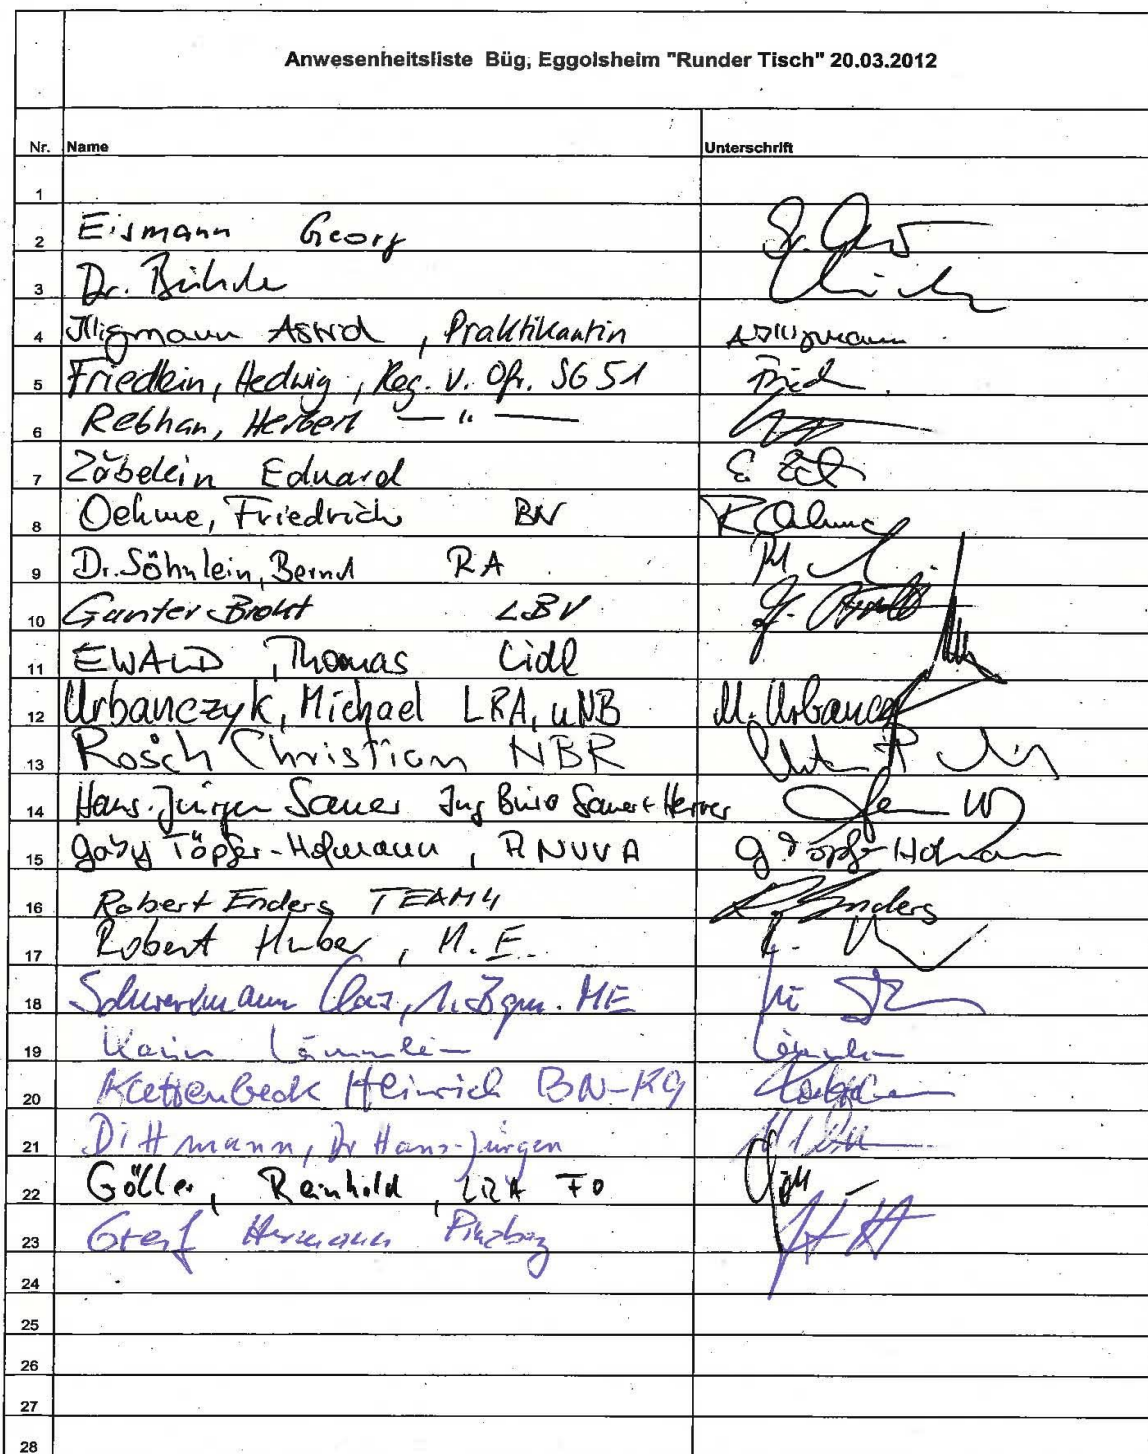 Anwesenheitsliste Büg, Eggolsheim "Runder Tisch" 20.03.2012
Nr. Name Unterschrift
1
2 Eismann Georg
3 Dr.
4 Illigmann Astrid, Praktikantin A. Illigmann
5 Friedlein, Hedwig, Reg. v. Ofr. SG 51 Fried
6 Rebhan, Herbert — " —
7 Zöbelein Eduard E.
8 Oehme, Friedrich BN F Oehme
9 Dr. Söhnlein, Bernd RA
10 Gunter Brokt LBV
11 EWALD, Thomas Lidl
12 Urbanczyk, Michael LRA, uNB M. Urbanczyk
13 Rosch Christian NBR
14 Hans-Jürgen Sauer Ing Büro Sauer +
15 Gaby Töpfer-Hofmann, ANUVA G Töpfer-Hofmann
16 Robert Enders TEAM4 R. Enders
17 Robert Huber, M.E.
18 Claus, 1. Bgm. ME
19 Karin Lämmlein Lämmlein
20 Heinrich BN-KG
21 Dittmann, Dr Hans-Jürgen
22 Göller, Reinhold, LRA FO Göll
23 Greif Hermann Pinzberg
24
25
26
27
28